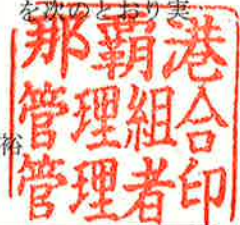 を次のとおり実
那覇港
管理組合
管理者印
裕